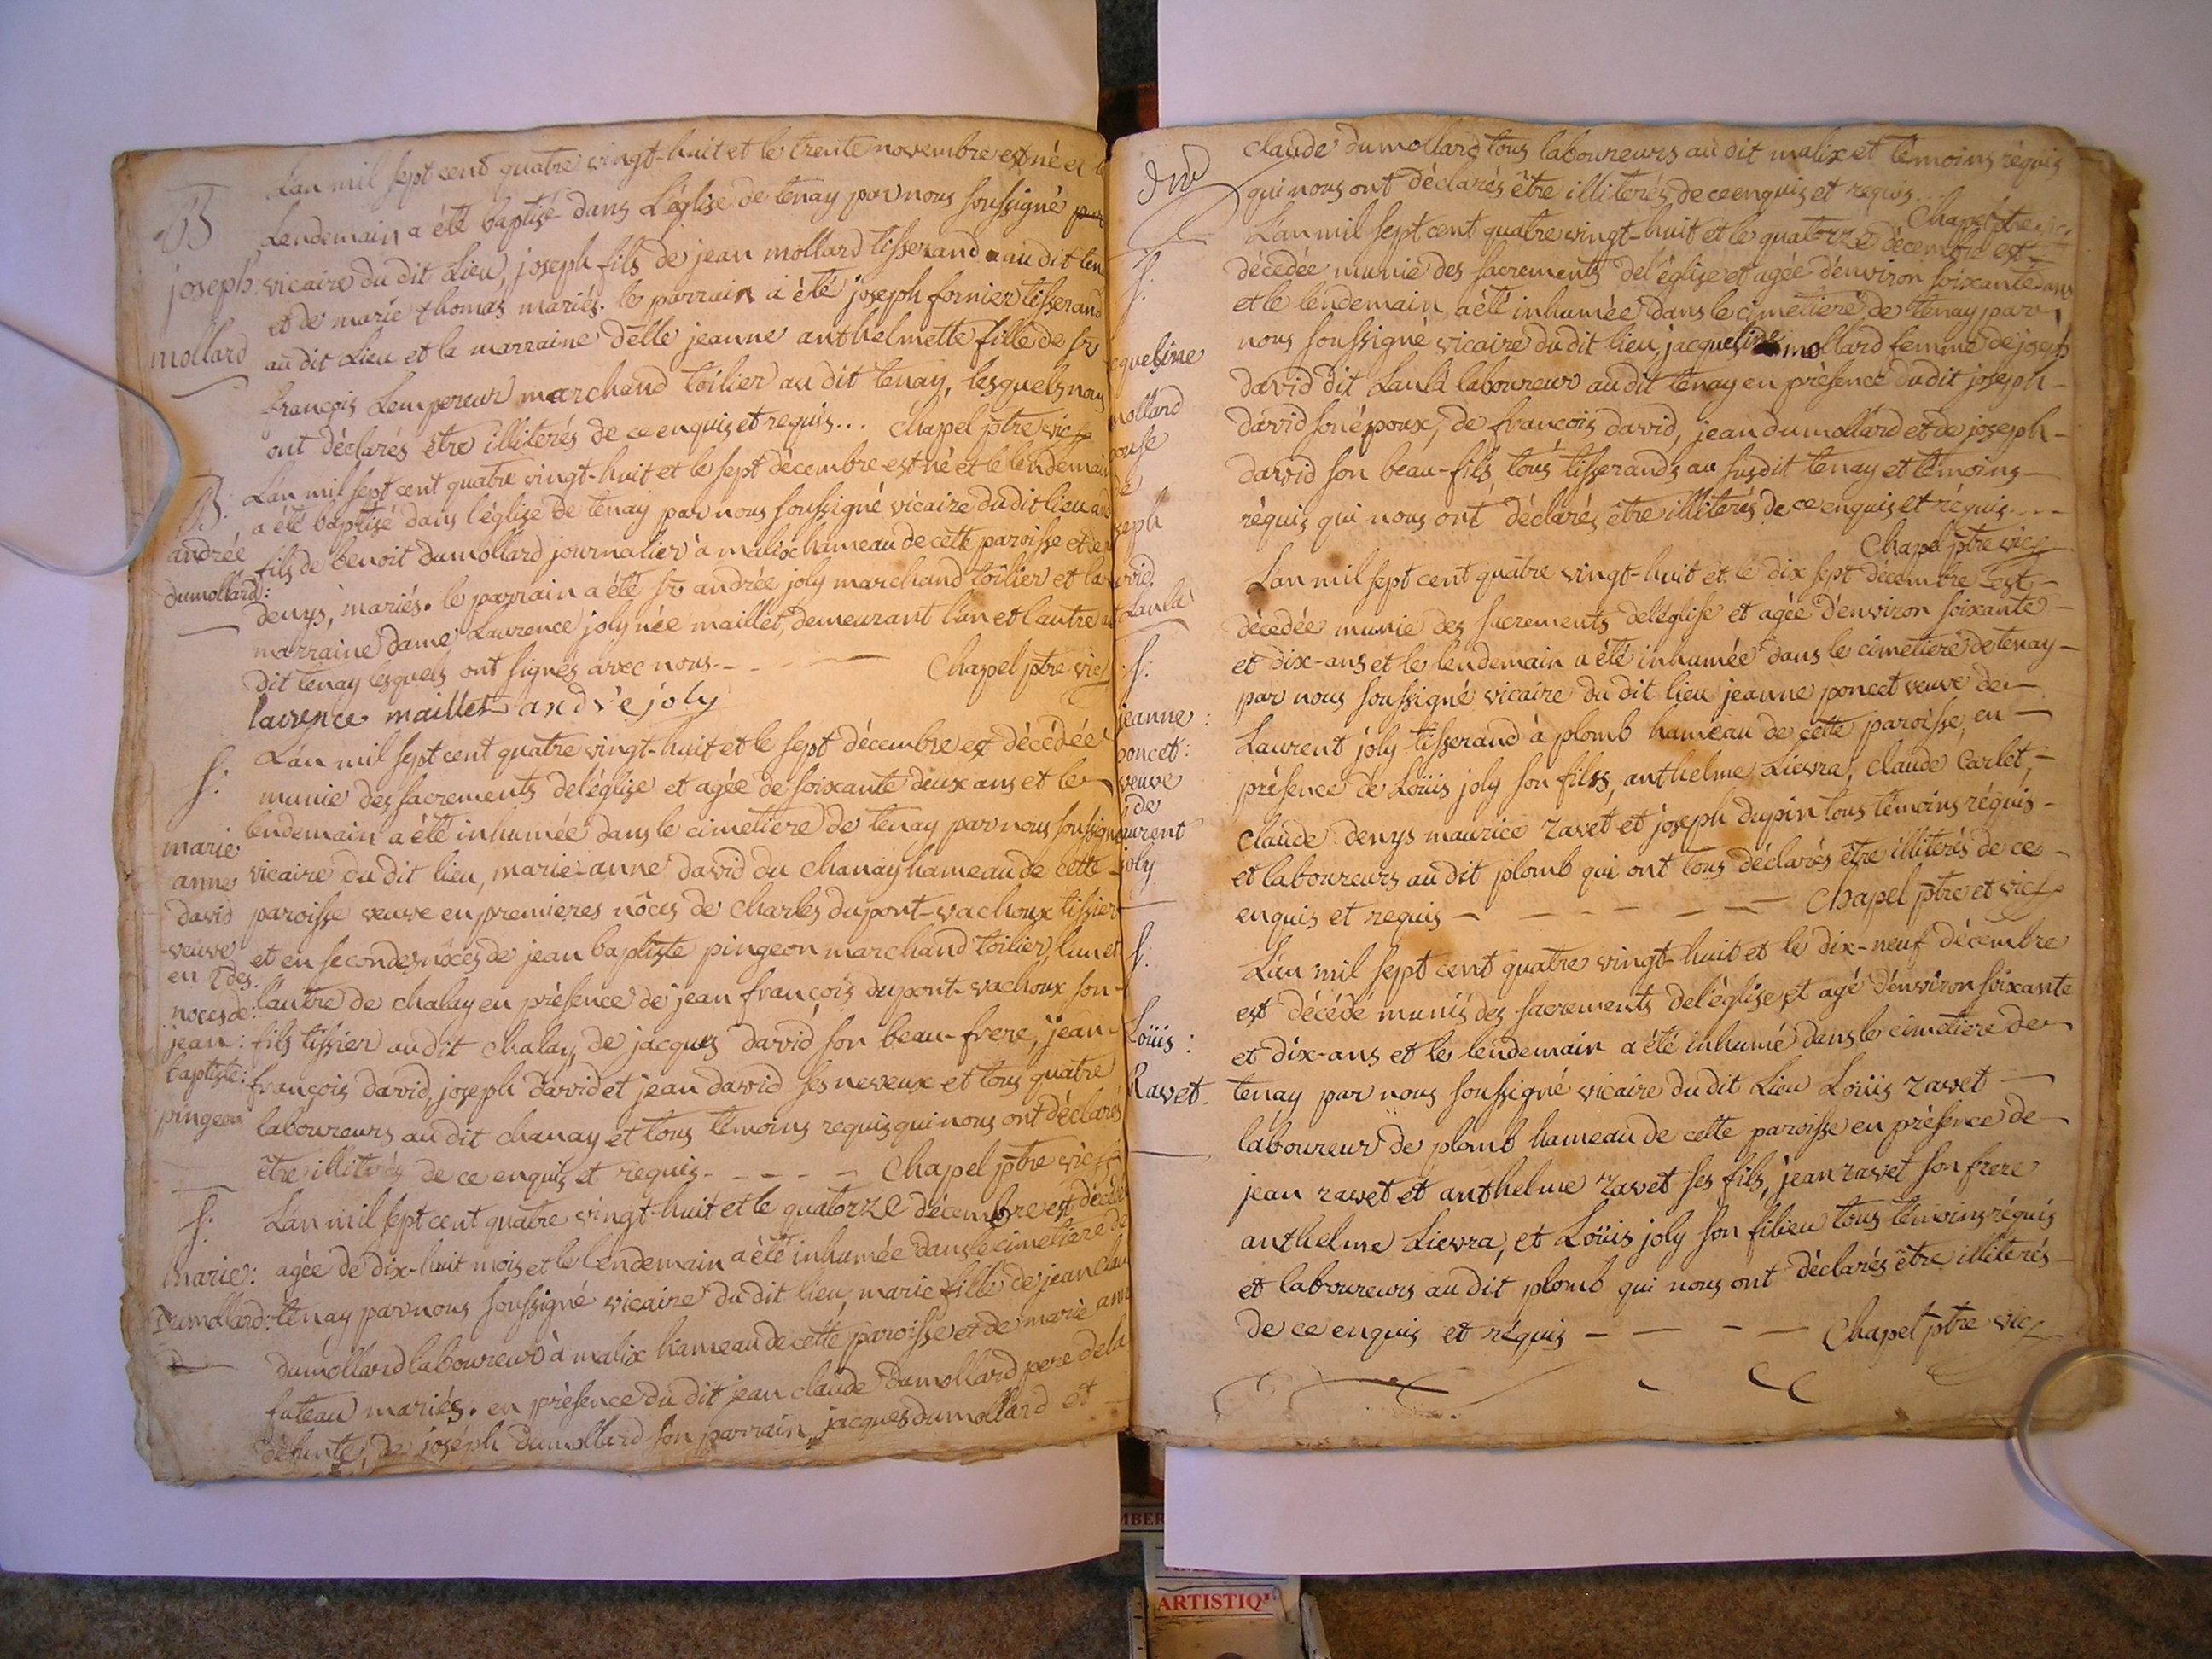 B
joseph
mollard
L'an mil sept cent quatre vingt-huit et le trente novembre est né et le
Lendemain a été baptisé dans L'église de tenay par nous soussigné
vicaire du dit Lieu, joseph fils de jean mollard tisserand au dit ten
et de marie thomas mariés. le parrain a été joseph fornier tisserand
au dit Lieu et la marraine delle jeanne anthelmette fille de sr
françois Lempereur marchand toilier au dit tenay, lesquels nous
ont déclarés être illiterés de ce enquis et requis... Chapel ptre vic
B:
andrée
dumollard:
L'an mil sept cent quatre vingt-huit et le sept décembre est né et le lendemain
a été baptisé dans l'église de tenay par nous soussigné vicaire du dit lieu and
fils de benoit dumollard journalier à malix hameau de cette paroisse et de
denys, mariés. le parrain a été sr andrée joly marchand toilier et la
marraine dame Laurence joly née maillet, demeurant l'un et l'autre au
dit tenay lesquels ont signés avec nous - - - Chapel ptre vic
laurence maillet andré joly
S:
marie
anne
david
-veuve
en 2des
noces de:
jean:
baptiste:
pingeon
L'an mil sept cent quatre vingt-huit et le sept décembre est décédée
munie des sacrements de l'église et agée de soixante deux ans et le
lendemain a été inhumée dans le cimetiere de tenay par nous soussigné
vicaire du dit lieu, marie-anne david du chanay hameau de cette -
paroisse veuve en premieres nôces de charles dupont-vachoux tissier
et en secondes nôces de jean baptiste pingeon marchand toilier, l'un et
l'autre de chalay en présence de jean françois dupont-vachoux son -
fils tissier au dit chalay, de jacques david son beau-frere, jean -
françois david, joseph david et jean david ses neveux et tous quatre
laboureurs au dit chanay et tous témoins requis qui nous ont déclarés
être illiterés de ce enquis et requis - - - - Chapel ptre vic
S:
marie:
Dumollard:
L'an mil sept cent quatre vingt-huit et le quatorze décembre est décédé
agée de dix-huit mois et le lendemain a été inhumée dans le cimetiere de
tenay par nous soussigné vicaire du dit lieu, marie fille de jean clau
dumollard laboureur à malix hameau de cette paroisse et de marie ann
futeau mariés. en présence du dit jean claude dumollard pere de la
défunte, de joséph dumollard son parrain, jacques dumollard et
claude dumollard tous laboureurs au dit malix et témoins réquis
qui nous ont déclarés être illiterés de ce enquis et requis
Chapel ptre vic
S:
cqueline
mollard
pouse
de
seph
vid
Laula
L'an mil sept cent quatre vingt-huit et le quatorze décembre est -
décédée munie des sacrements de l'église et agée d'environ soixante ans
et le lendemain a été inhumée dans le cimetiere de tenay par
nous soussigné vicaire du dit lieu, jacqueline mollard femme de joseph
david dit Laula laboureur au dit tenay en présence du dit joseph -
david son époux, de francois david, jean dumollard et de joseph -
david son beau-fils, tous tisserands au susdit tenay et témoins -
réquis qui nous ont déclarés être illiterés de ce enquis et requis - - -
Chapel ptre vic
S:
jeanne:
poncet:
veuve
de
aurent
joly
L'an mil sept cent quatre vingt-huit et le dix sept décembre est -
décédée munie des sacrements de l'église et agée d'environ soixante -
et dix-ans et le lendemain a été inhumée dans le cimetiere de tenay -
par nous soussigné vicaire du dit lieu jeanne poncet veuve de -
Laurent joly tisserand à plomb hameau de cette paroisse, en -
présence de Loüis joly son fils, anthelme Lievra, claude Carlet, -
claude denys maurice ravet et joseph dupin tous témoins réquis -
et laboureurs au dit plomb qui ont tous déclarés être illiterés de ce -
enquis et requis - - - - - - Chapel ptre et vic
S:
Loüis:
Ravet.
L'an mil sept cent quatre vingt-huit et le dix-neuf décembre
est décédé munis des sacrements de l'église, et agé d'environ soixante
et dix-ans et le lendemain a été inhumé dans le cimetiere de
tenay par nous soussigné vicaire du dit Lieu Loüis ravet -
laboureur de plomb hameau de cette paroisse en présence de -
jean ravet et anthelme ravet ses fils, jean ravet son frere
anthelme Lievra, et Loüis joly son filieu tous témoins réquis
et laboureurs au dit plomb qui nous ont déclarés être illiterés -
de ce enquis et réquis - - - - Chapel ptre vic
ARTISTIQ